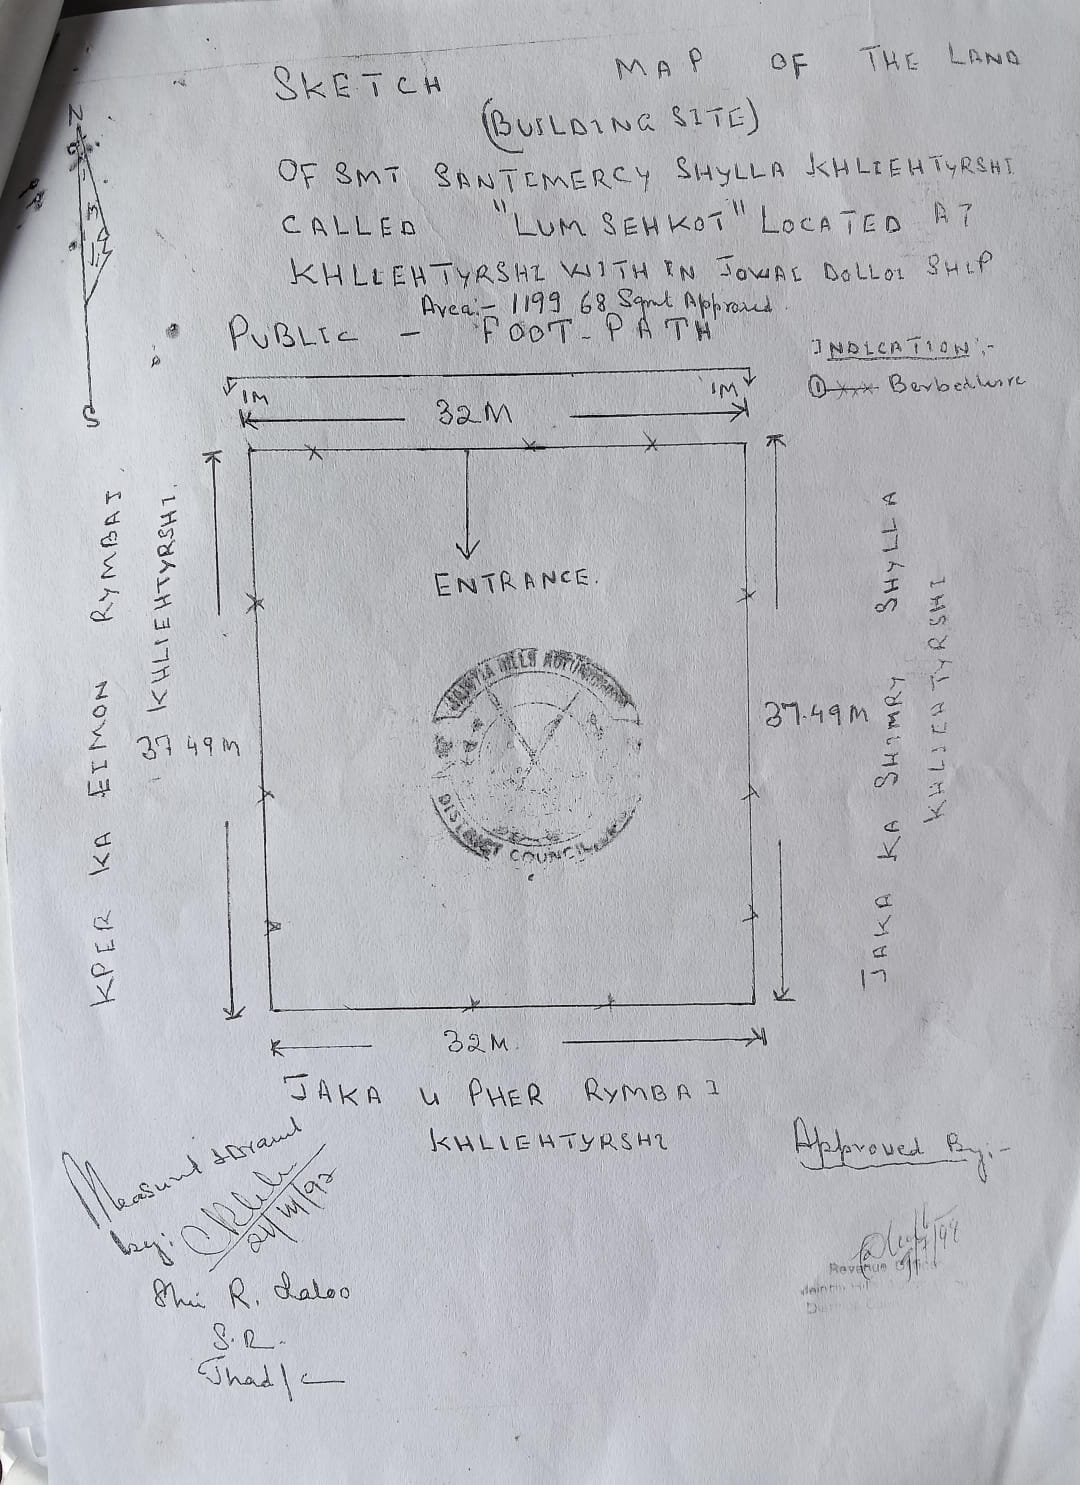 SKETCH MAP OF THE LAND
(BUILDING SITE)
OF SMT SANTEMERCY SHYLLA KHLIEHTYRSHI
CALLED "LUM SEHKOT" LOCATED AT
KHLIEHTYRSHI WITH IN JOWAI DOLLOI SHIP
Area:- 1199.68 Sqmt Approved.
PUBLIC - FOOT-PATH
N
S
INDICATION:-
① xxx Berbedwire
1M
1M
32M
ENTRANCE.
KPER KA EIMON RYMBAI
KHLIEHTYRSHI.
37.49M
37.49M
JAKA KA SHIMRY SHYLLA
KHLIEHTYRSHI
JAINTIA HILLS AUTONOMOUS
DISTRICT COUNCIL
32M.
JAKA U PHER RYMBAI
KHLIEHTYRSHI
Measured & Drawn
by:
Shri R. Laloo
S.R.
Jhad/c
Approved By:-
Revenue